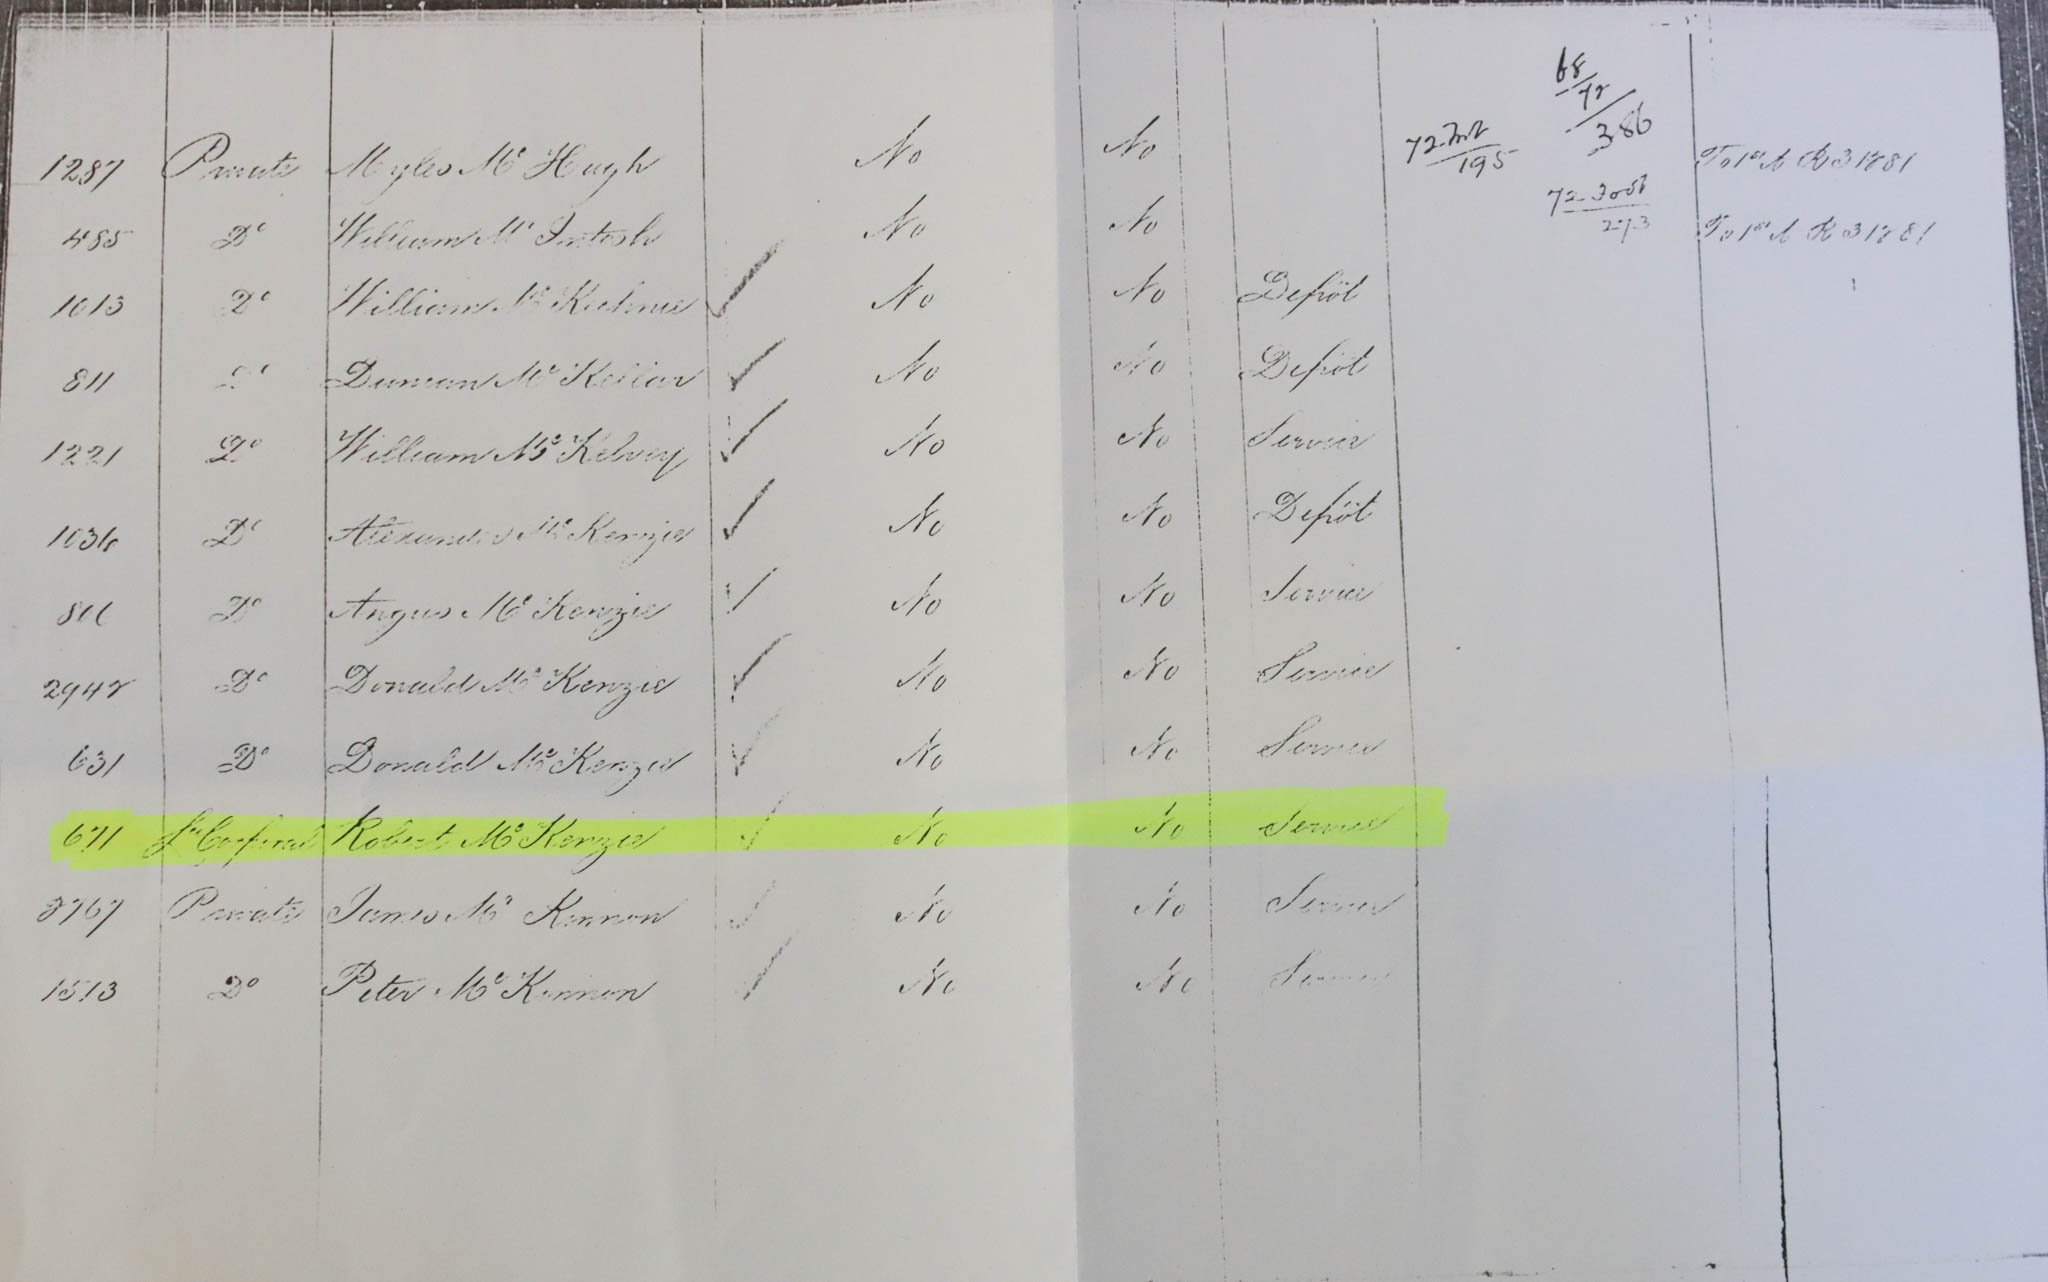 68/72/386
1287 Private Myles Mc Hugh No No 72 Int/195 To 1st A R 3 1881
485 Do William Mc Intosh No No 72 /273 To 1st A R 3 1881
1013 Do William Mc Kechnie No No Depôt
811 Do Duncan Mc Kellar No No Depôt
1221 Do William Mc Kelvey No No Service
1036 Do Alexander Mc Kenzie No No Depôt
Do Angus Mc Kenzie No No Service
2948 Do Donald Mc Kenzie No No Service
631 Do Donald Mc Kenzie No No Service
671 Le Corporal Robert Mc Kenzie No No Service
3767 Private James Mc Kinnon No No Service
1513 Do Peter Mc Kinnon No No Service